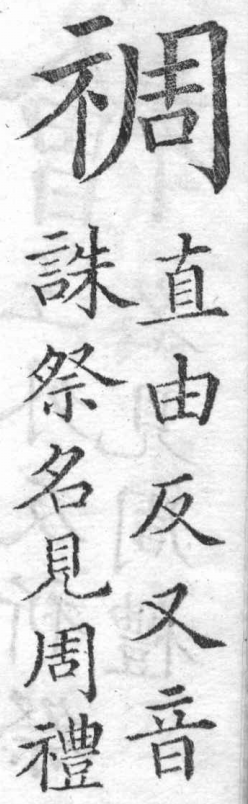 禂
直由反又音
誅祭名見周禮